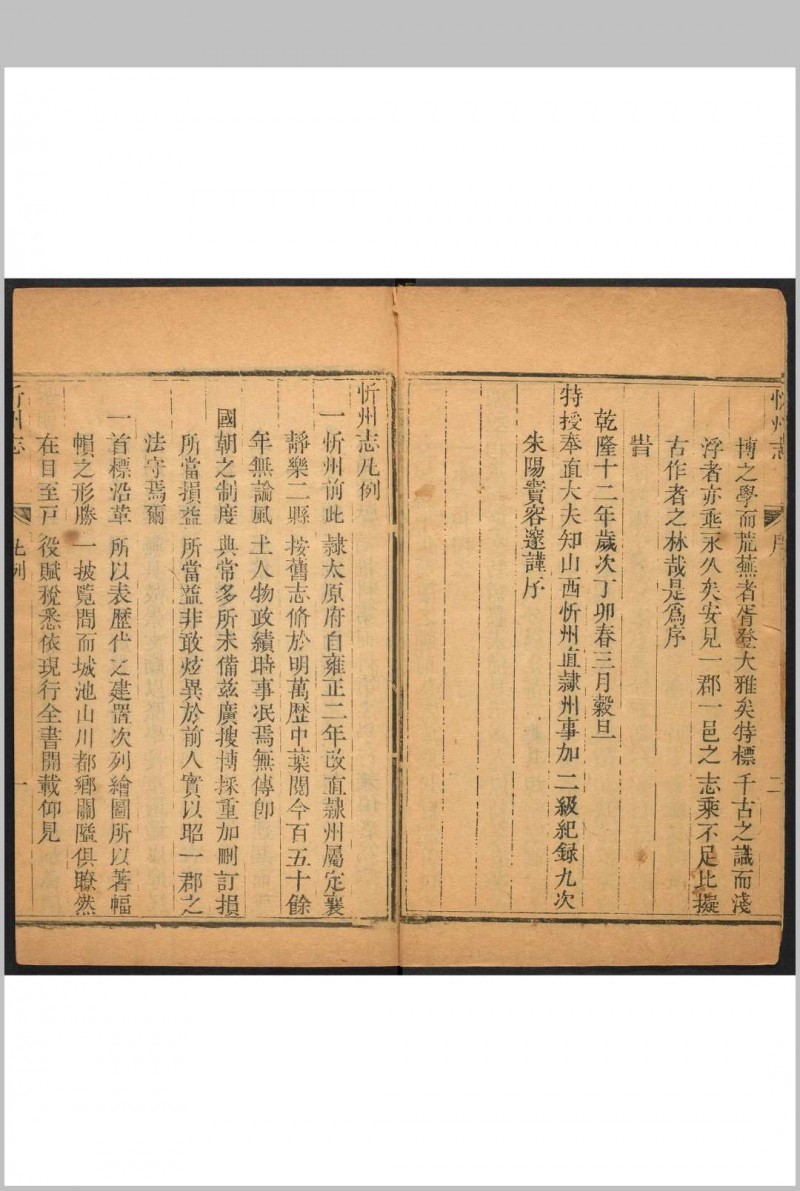 忻州志 序 二
博之學而荒蕪者胥登大雅矣特標千古之識而淺
浮者亦垂永久矣安見一郡一邑之志乘不足比擬
古作者之林哉是爲序
旹
乾隆十二年歲次丁卯春三月穀旦
特授奉直大夫知山西忻州直隸州事加二級紀録九次
朱陽竇容邃謹序
忻州志凡例
一忻州前此隸太原府自雍正二年改直隸州屬定襄
靜樂二縣按舊志脩於明萬歷中葉閱今百五十餘
年無論風土人物政績時事泯焉無傳卽
國朝之制度典常多所未備兹廣搜博採重加刪訂損
所當損益所當益非敢炫異於前人實以昭一郡之
法守焉爾
一首標沿革所以表歷代之建置次列繪圖所以著幅
䫙之形勝一披覽間而城池山川都鄉關隘俱瞭然
在目至戸役賦稅悉依現行全書開載仰見
忻州志 凡例 一